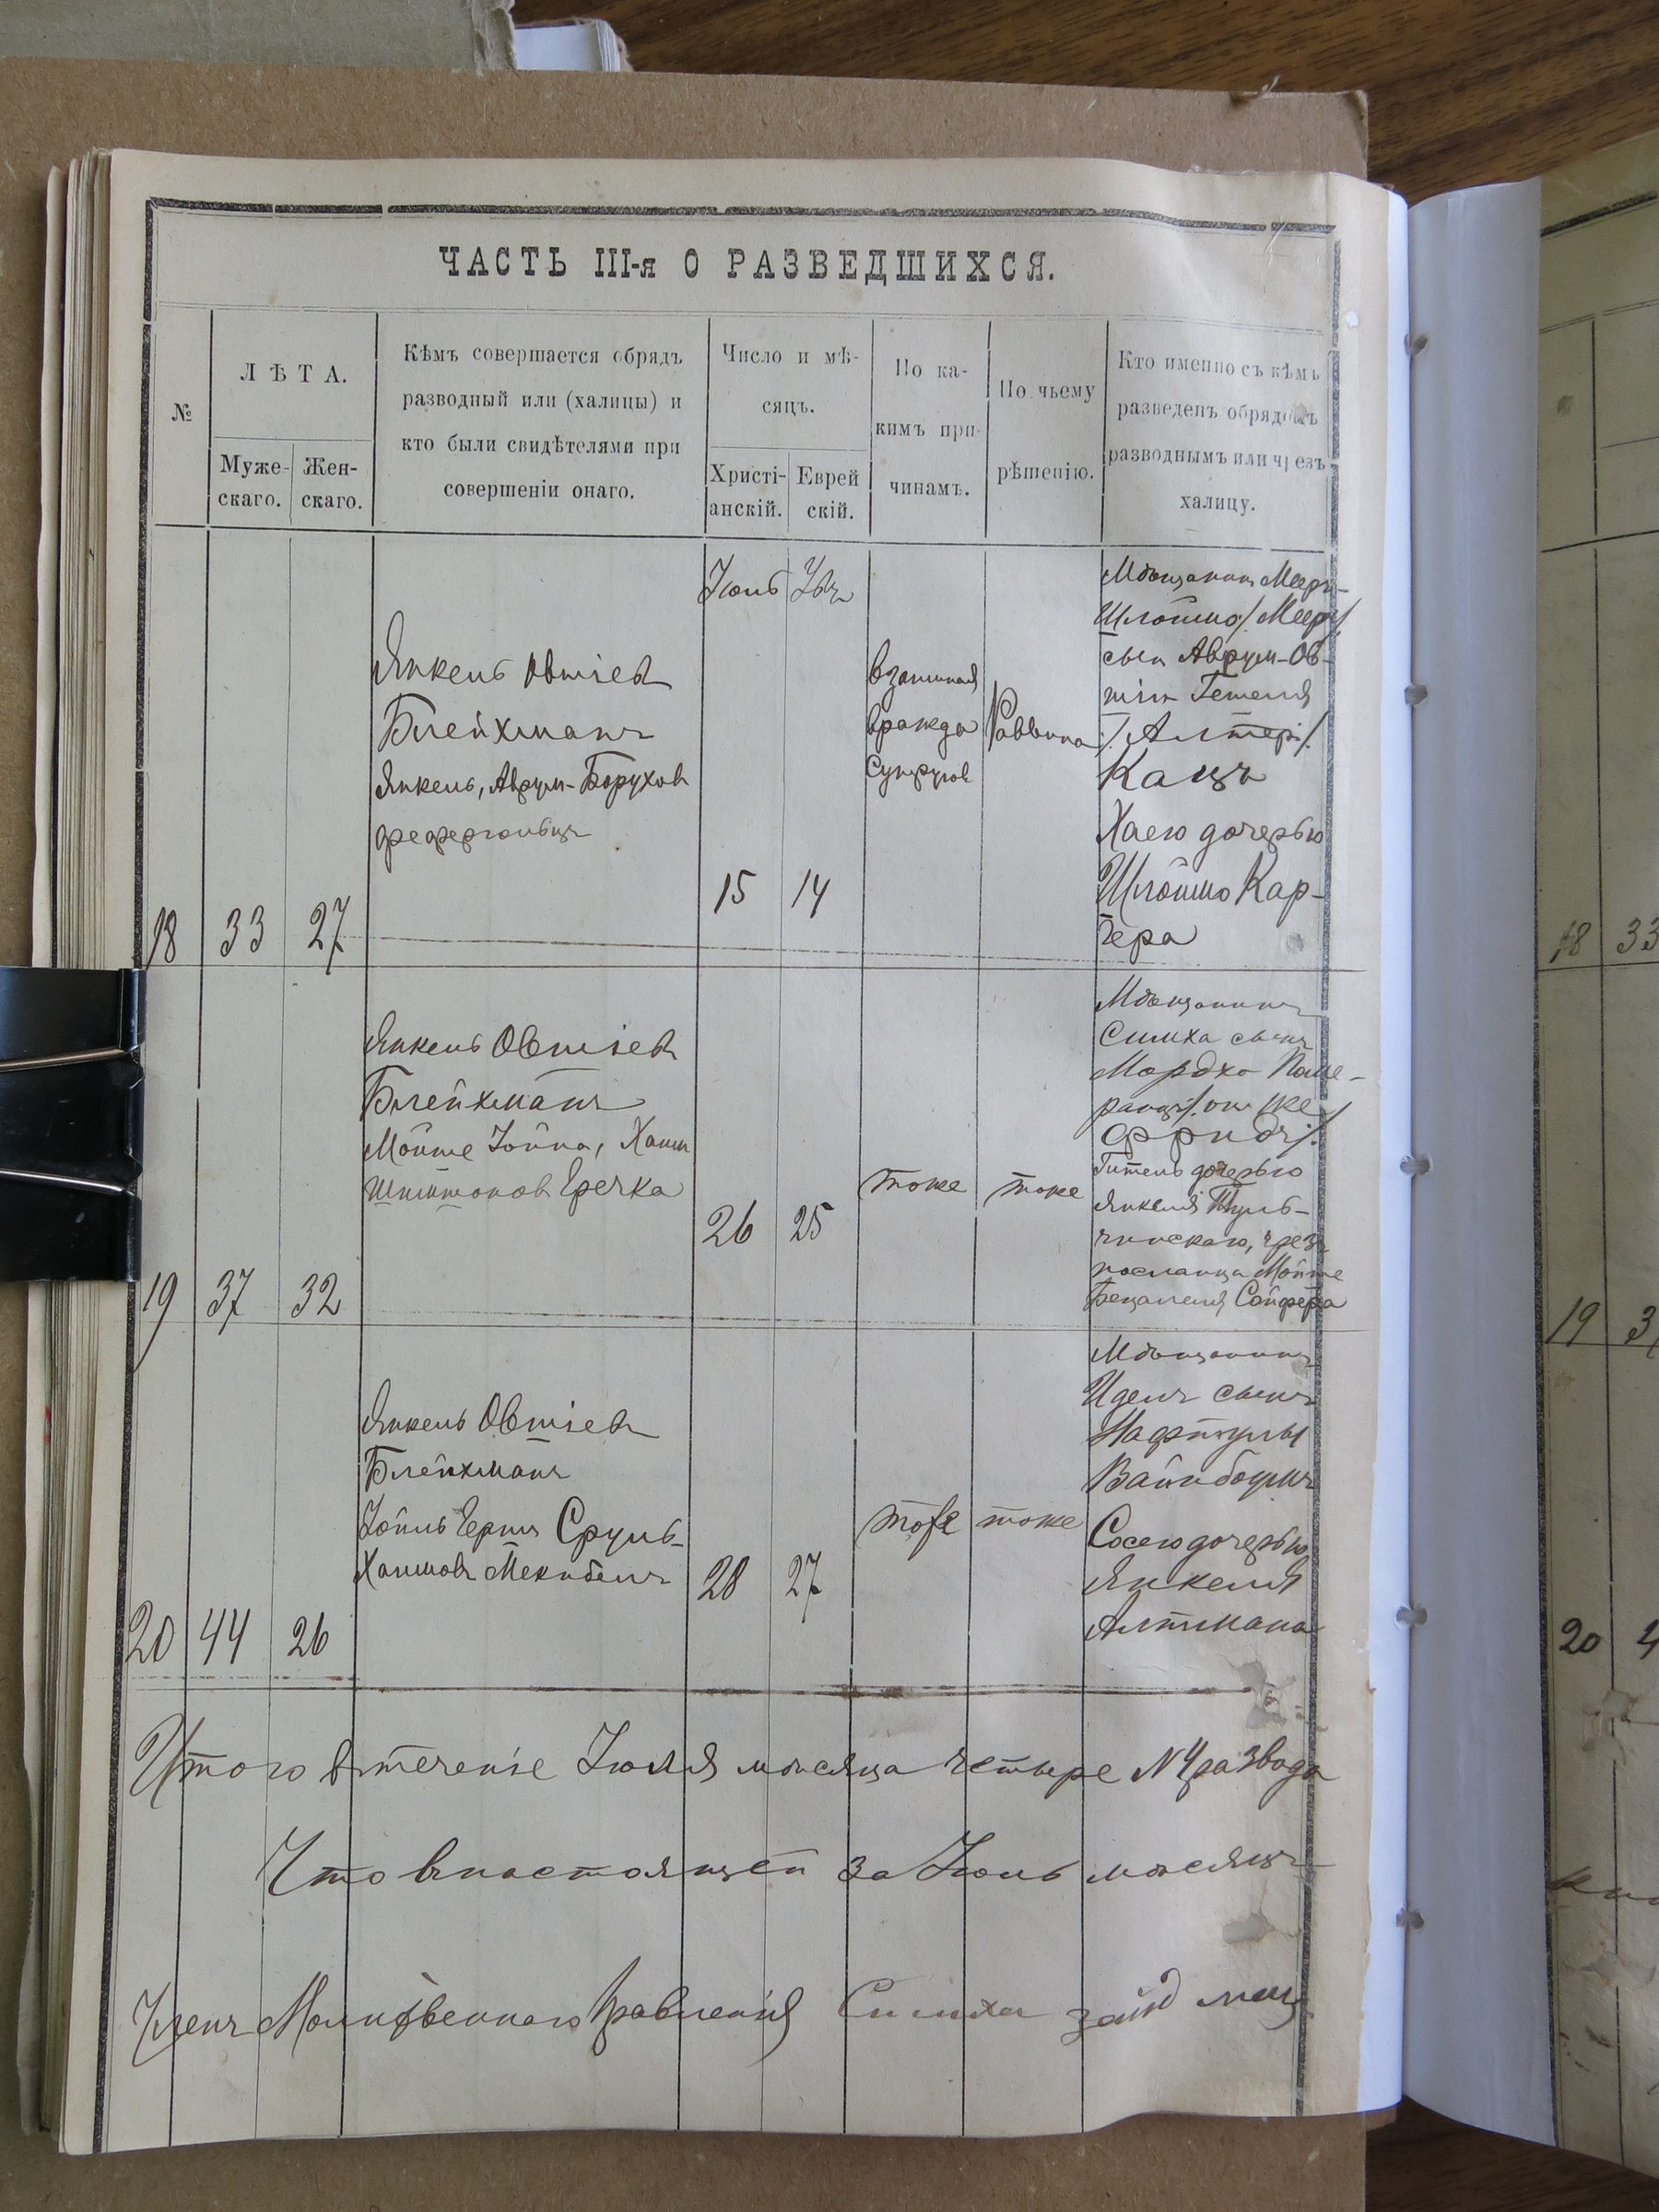 ЧАСТЬ III-я О РАЗВЕДШИХСЯ.
№
ЛѢТА.
Муже-
скаго.
Жен-
скаго.
Кѣмъ совершается обрядъ
разводный или (халицы) и
кто были свидѣтелями при
совершеніи онаго.
Число и мѣ-
сяцъ.
Христі-
анскій.
Еврей
скій.
По ка-
кимъ при-
чинамъ.
По чьему
рѣшенію.
Кто именно съ кѣмъ
разведенъ обрядомъ
разводнымъ или чрезъ
халицу.
18
33
27
Янкель Овшіевъ
Блейхманъ
Янкель, Аврум-Борухов
Фефергольцъ
Іюль
15
14
взаимная
вражда
Супругов
Раввина
Мѣщанинъ Мееръ-
Шлойма /Меер/
сын Аврум-Ов-
шія Гетеля
/Алтер/
Кацъ
Хаею дочерью
Шлоймо Кар-
чера
19
37
32
Янкель Овшіевъ
Блейхманъ
26
25
тоже
тоже
Мѣщанинъ
Симха сынъ
Мордко
он же
Фридъ/
дочерью
Янкеля Туль-
чинскаго, чрезъ
посланца Мойше
Бецалеля Сойфера
20
44
26
Янкель Овшіевъ
Блейхманъ
Сруль-
28
27
тоже
тоже
Мѣщанинъ
Иделъ сынъ
Нафтулы
Вайнбоумъ
Сосею дочерью
Янкеля
Алтмана
Итого втеченіе Іюля мѣсяца четыре №4 развода
Что внастоящей за Іюль мѣсяцъ
Членъ Молитвеннаго Правленія Симха
18
33
19
3
20
4